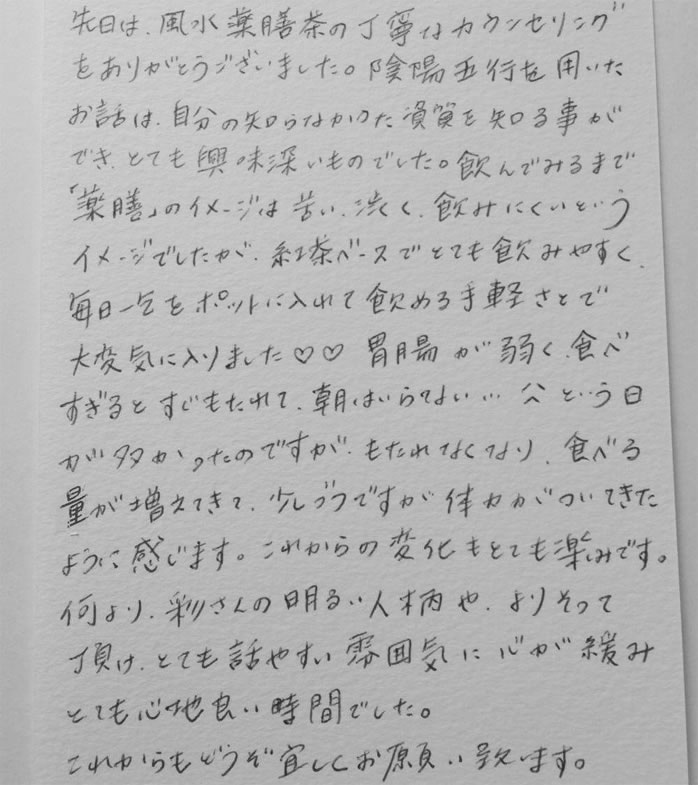 先日は、風水薬膳茶の丁寧なカウンセリング
をありがとうございました。陰陽五行を用いた
お話は、自分の知らなかった資質を知る事が
でき、とても興味深いものでした。飲んでみるまで
「薬膳」のイメージは苦い、渋く、飲みにくいという
イメージでしたが、紅茶ベースでとても飲みやすく、
毎日一包をポットに入れて飲める手軽さとで
大変気に入りました♡♡ 胃腸が弱く、食べ
すぎるとすぐもたれて、朝はいらない…という日
が多かったのですが、もたれなくなり、食べる
量が増えてきて、少しづつですが体力がついてきた
ように感じます。これからの変化もとても楽しみです。
何より、彩さんの明るい人柄や、よりそって
頂け、とても話やすい雰囲気に心が緩み
とても心地良い時間でした。
これからもどうぞ宜しくお願い致します。